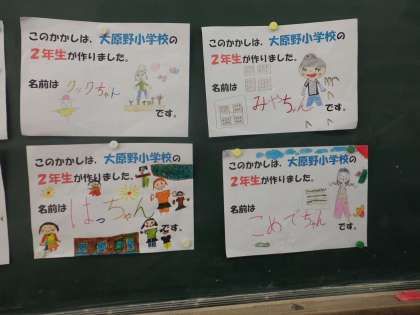 このかかしは、大原野小学校の
2年生が作りました。
名前は クックちゃん
です。
このかかしは、大原野小学校の
2年生が作りました。
名前は みやちゃん
です。
このかかしは、大原野小学校の
2年生が作りました。
名前は はっちゃん
です。
このかかしは、大原野小学校の
2年生が作りました。
名前は こめでちゃん
です。